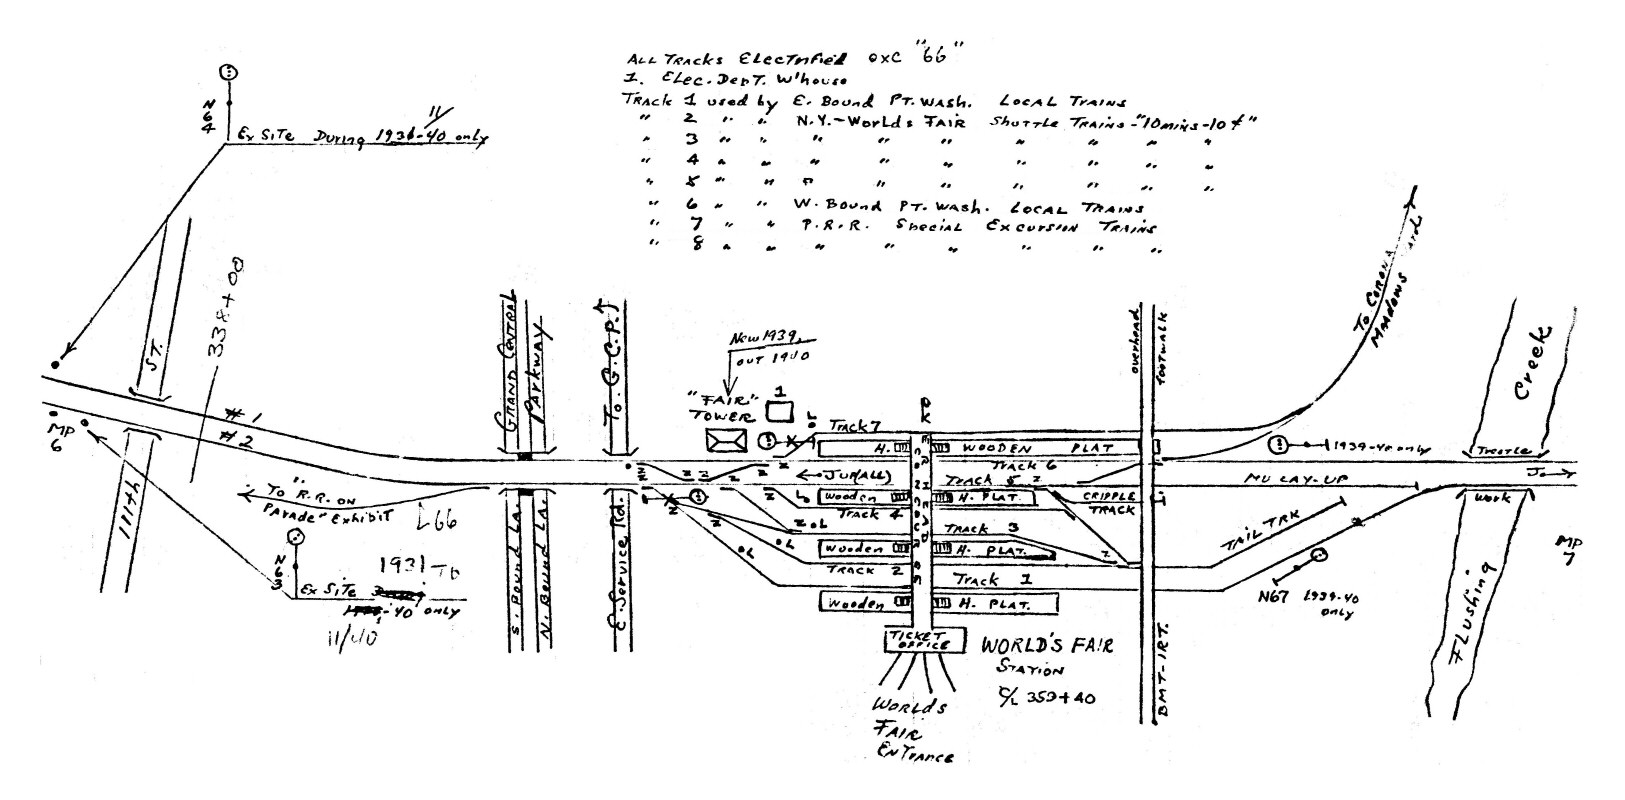 ALL TRACKS ELECTRIFIED EXC "66"
1. ELEC. DEPT. W'HOUSE
TRACK 1 used by E. Bound PT. WASH. LOCAL TRAINS
" 2 " " N.Y.-Worlds FAIR SHUTTLE TRAINS-"10mins-10¢"
" 3 " " " " " " " " "
" 4 " " " " " " " " "
" 5 " " " " " " " " "
" 6 " " W. Bound PT. WASH. LOCAL TRAINS
" 7 " " P.R.R. Special Excursion TRAINS
" 8 " " " " " " " "
N64
11/
Ex SITE During 1936-40 only
ST.
338+00
GRAND CENTRAL
PARKWAY
To G.C.P.
New 1939,
OUT 1940
"FAIR"
TOWER
1
overhead
FOOTWALK
To CORONA
MEADOWS YARD
Creek
#1
#2
MP
6
Track 7
H. WOODEN PLAT
1939-40 only
Trestle
TRACK 6
JUP(ALL)
TRACK 5
MU LAY-UP
J.
To "R.R. ON
PARADE" Exhibit
66
Wooden H. PLAT.
CRIPPLE
TRACK
WORK
TRACK 4
111th
TRACK 3
TAIL TRK
MP
7
Wooden H. PLAT.
N63
1931 TO
Ex SITE
-40 only
11/40
TRACK 2
TRACK 1
N67 1939-40
only
Wooden H. PLAT.
S. Bound La.
N. Bound La.
E. Service Rd.
TICKET
OFFICE
WORLD'S FAIR
STATION
C/L 359+40
BMT-IRT.
Flushing
WORLDS
FAIR
ENTRANCE